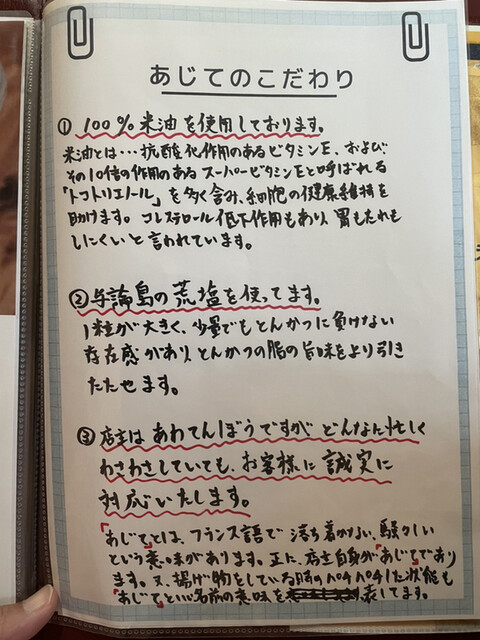 あじてのこだわり
① 100%米油を使用しております。
米油とは…抗酸化作用のあるビタミンE、および
その10倍の作用のあるスーパービタミンEと呼ばれる
「トコトリエノール」を多く含み、細胞の健康維持を
助けます。コレステロール低下作用もあり、胃もたれも
しにくいと言われています。
② 与論島の荒塩を使ってます。
1粒が大きく、少量でもとんかつに負けない
存在感があり、とんかつの脂の旨味をより引き
たたせます。
③ 店主はあわてんぼうですがどんなに忙しく
わさわさしていても、お客様に誠実に
対応いたします。
「あじて」とは、フランス語で落ち着かない、騒々しい
という意味があります。正に、店主自身が「あじて」であり
ます。又、揚げ物をしている時のパチパチした状態も
「あじて」という名前の意味を表してます。